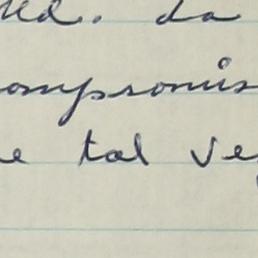 Md. da
compromis
e tal ve